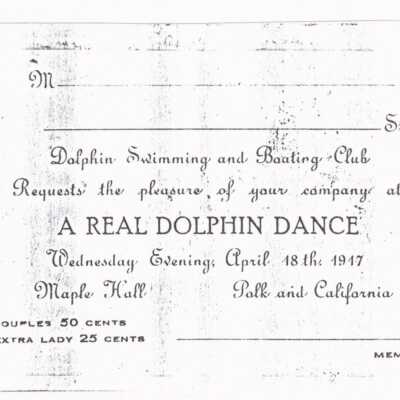 M
Dolphin Swimming and Boating Club
Requests the pleasure of your company at
A REAL DOLPHIN DANCE
Wednesday Evening, April 18th, 1917
Maple Hall Polk and California
50 CENTS
EXTRA LADY 25 CENTS